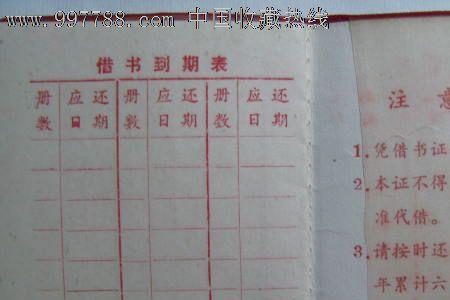 www.997788.com 中国收藏热线
借书到期表
册数 应还日期 册数 应还日期 册数 应还日期
注 意
1.凭借书证
2.本证不得
准代借。
3.请按时还
年累计六